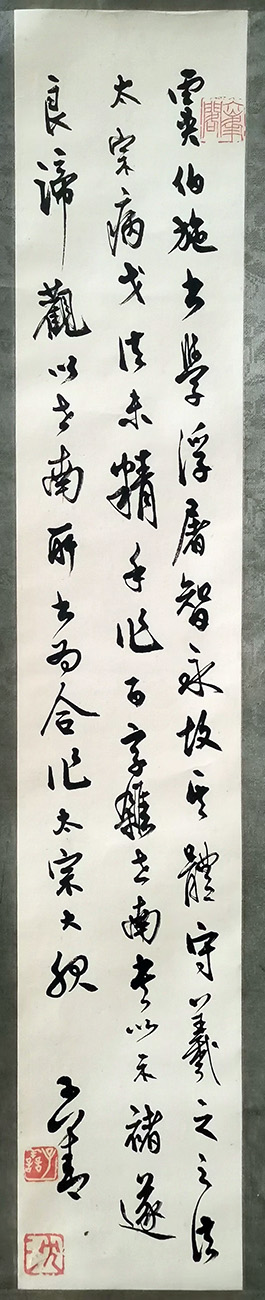 虞伯施書學浮屠智永故其體守羲之之法
太宗病戈法未精手作百字雜世南書以示褚遂
良諦觀以世南所書為合作太宗大服
子善
沈